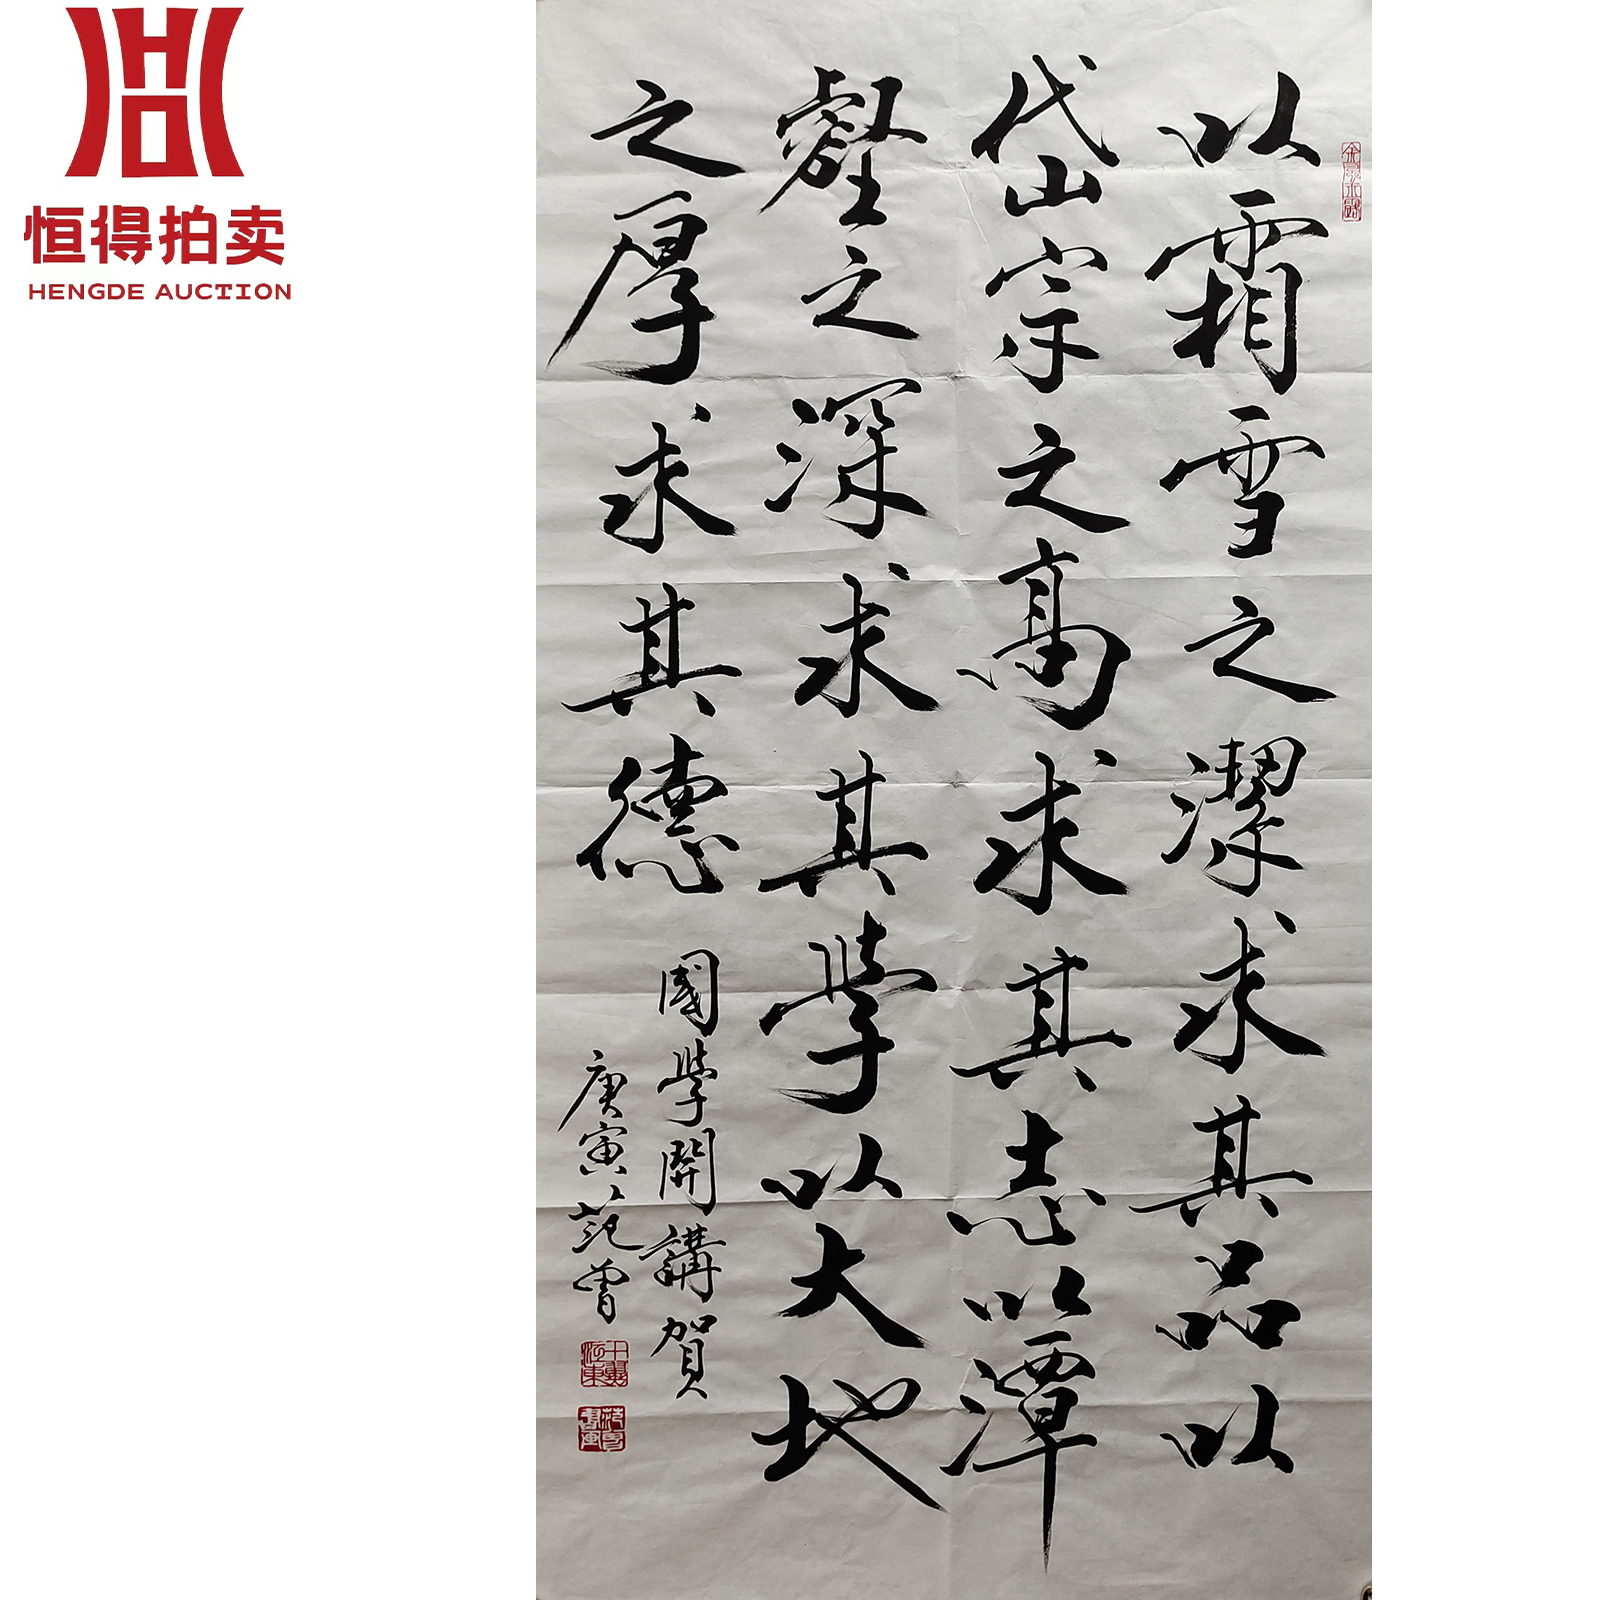 恒得拍卖
HENGDE AUCTION
以霜雪之潔求其品以
岱宗之高求其志以潭
壑之深求其學以大地
之厚求其德
國學開講賀
庚寅范曾